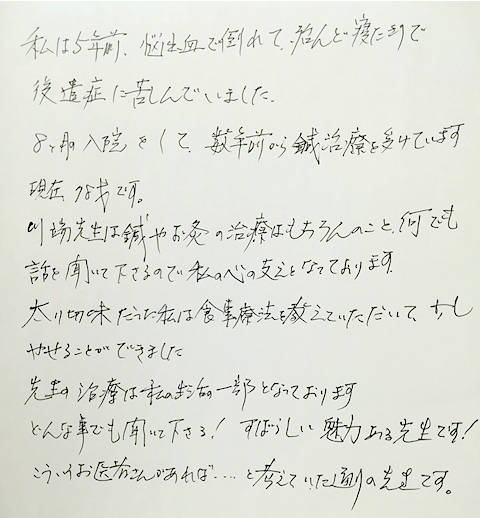 私は5年前、脳出血で倒れて、殆んど寝たきりで
後遺症に苦しんでいました。
8ヶ月入院をして、数年前から鍼治療を受けています
現在 78才です。
川場先生は鍼やお灸の治療はもちろんのこと、何でも
話を聞いて下さるので私の心の支えとなっております。
太り切味だった私は食事療法を教えていただいて、少し
やせることができました
先生の治療は私の生活の一部となっております
どんな事でも聞いて下さる! すばらしい魅力ある先生です!
こういうお医者さんがあれば....と考えていた通りの先生です。